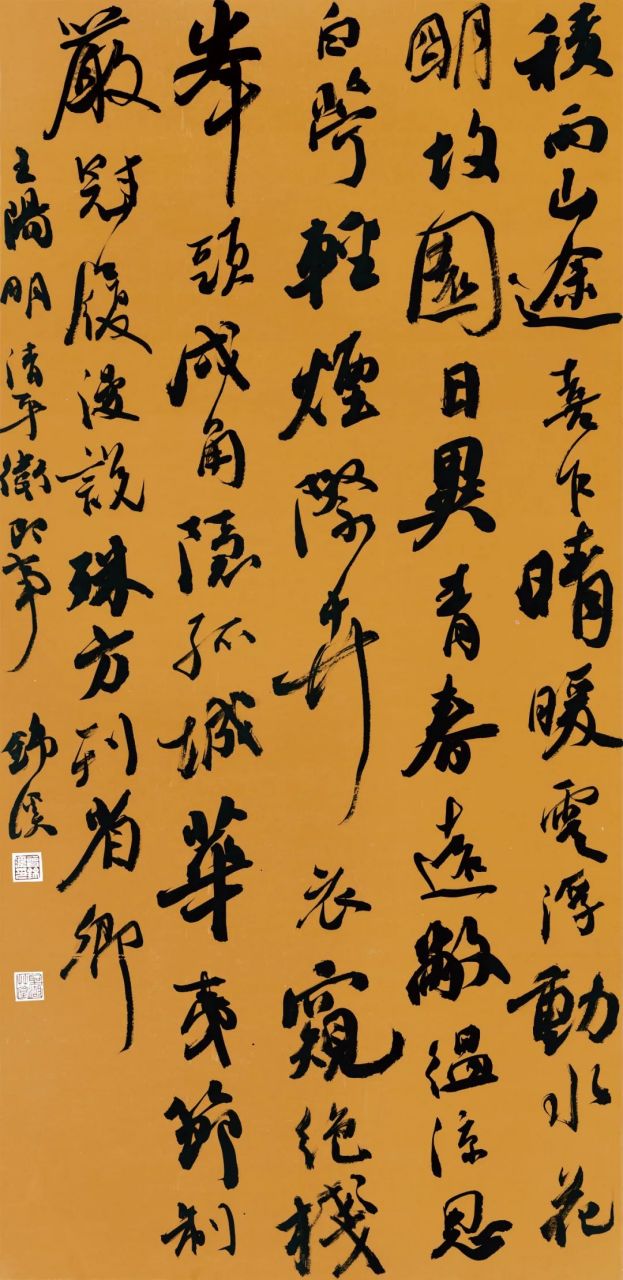 積雨山途喜乍晴暖雲浮動水花
明故園日與青春遠敝緼涼思
白苧輕煙際卉衣窺絕棧
峯頭戍角隱孤城華夷節制
嚴冠履漫說殊方列省卿
王陽明清平衛即事 錦溪